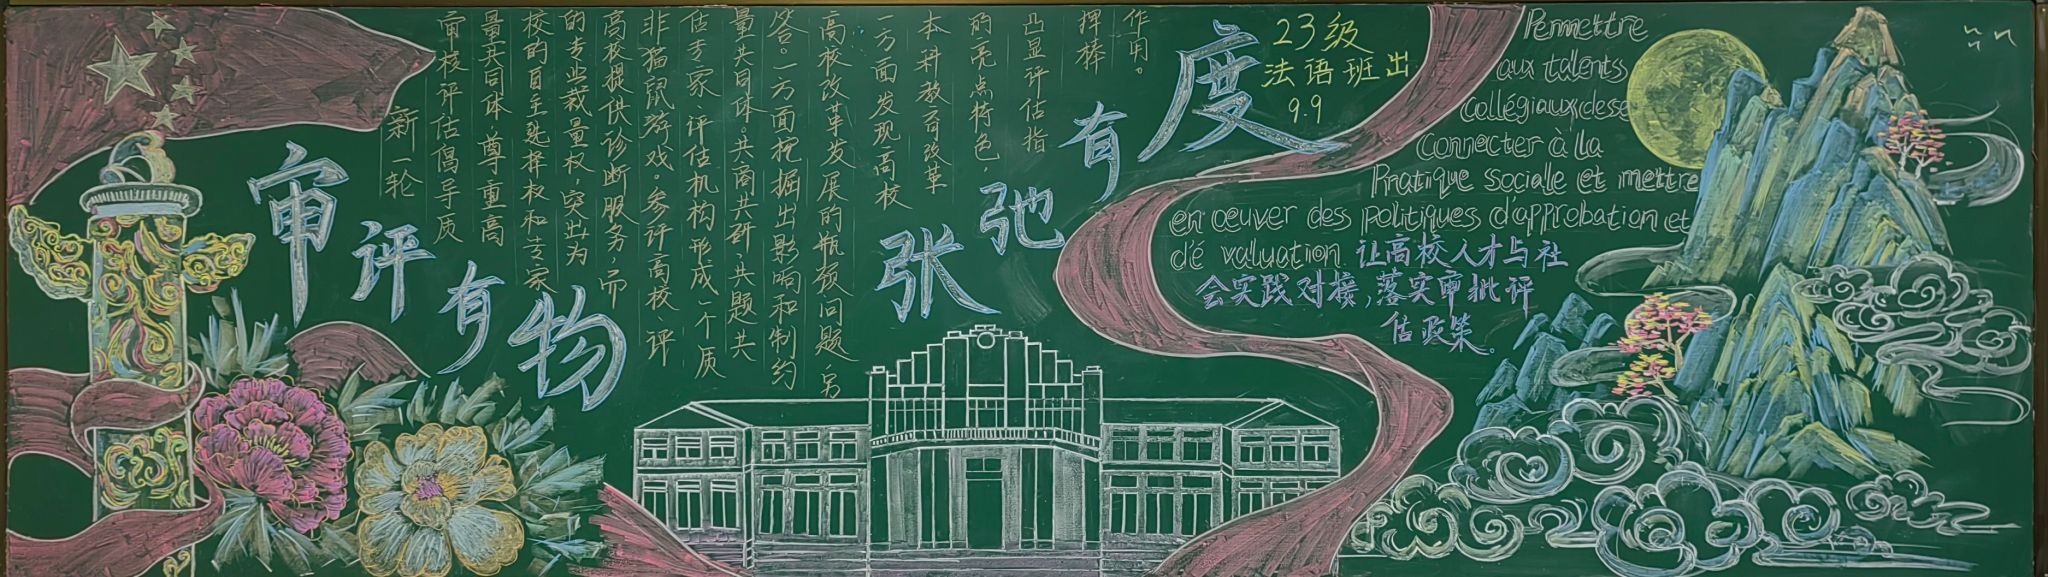 审评有物
张弛有度
新一轮
审核评估倡导质
量共同体，尊重高
校的自主选择权和专家
的专业裁量权，突出为
高校提供诊断服务，而
非猫鼠游戏。参评高校、评
估专家、评估机构形成一个质
量共同体。共商共研、共题共
答。一方面挖掘出影响和制约
高校改革发展的瓶颈问题，另
一方面发现高校
本科教育改革
的亮点特色，
凸显评估指
挥棒
作用。
23级
法语班出
9.9
Permettre
aux talents
Collégiaux dese
Connecter à la
Pratique sociale et mettre
en oeuver des politiques d'approbation et
d'é valuation 让高校人才与社
会实践对接，落实审批评
估政策。